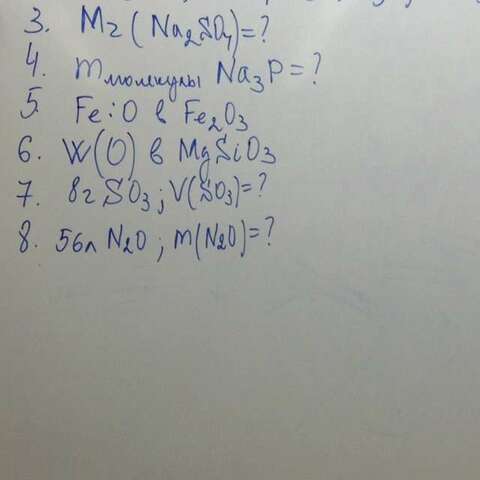 3. Mr (Na₂SO₄)=?
4. mмолекулы Na₃P=?
5. Fe:O в Fe₂O₃
6. W(O) в MgSiO₃
7. 8г SO₃; V(SO₃)=?
8. 56л N₂O; m(N₂O)=?